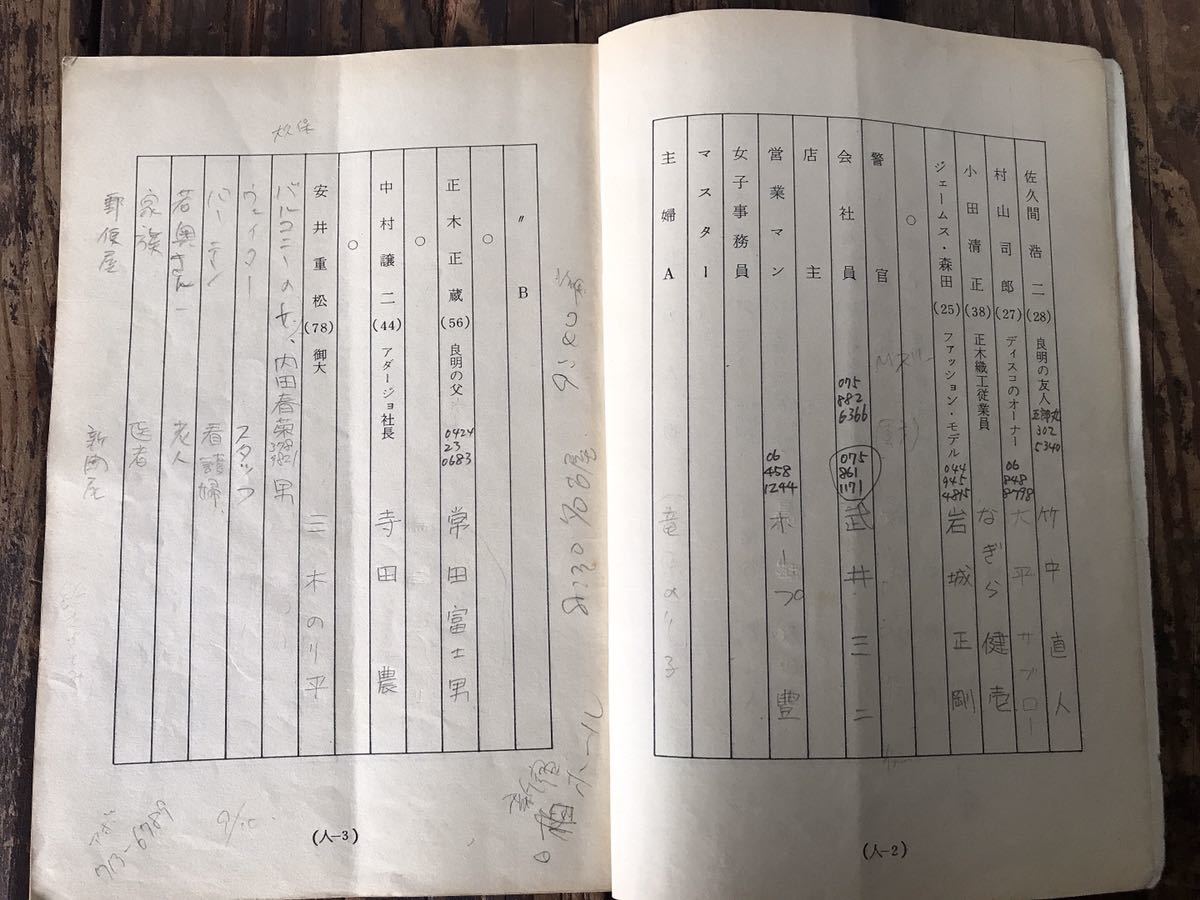 佐久間浩二(28) 良明の友人 302 5340 竹中直人
村山司郎(27) ディスコのオーナー 06 848 8798 大平サブロー
小田清正(38) 正木織工従業員 なぎら健壱
ジェームス・森田(25) ファッション・モデル 044 945 4845 岩城正剛
○
警官
会社員 075 882 6366 075 861 1171 武井三二
店主
営業マン 06 458 1244 豊
女子事務員
マスター
主婦A
(人-2)
〃B
○
正木正蔵(56) 良明の父 0424 23 0683 常田富士男
○
中村譲二(44) アダージョ社長 寺田農
○
安井重松(78) 御大 三木のり平
大久保
バルコニーの女、内田春菊 男
ウェイター スタッフ
バーテン 看護婦
若奥さん 老人
家族 医者
郵便屋 新聞屋
8:30 名古屋
ホール
713-6789
(人-3)